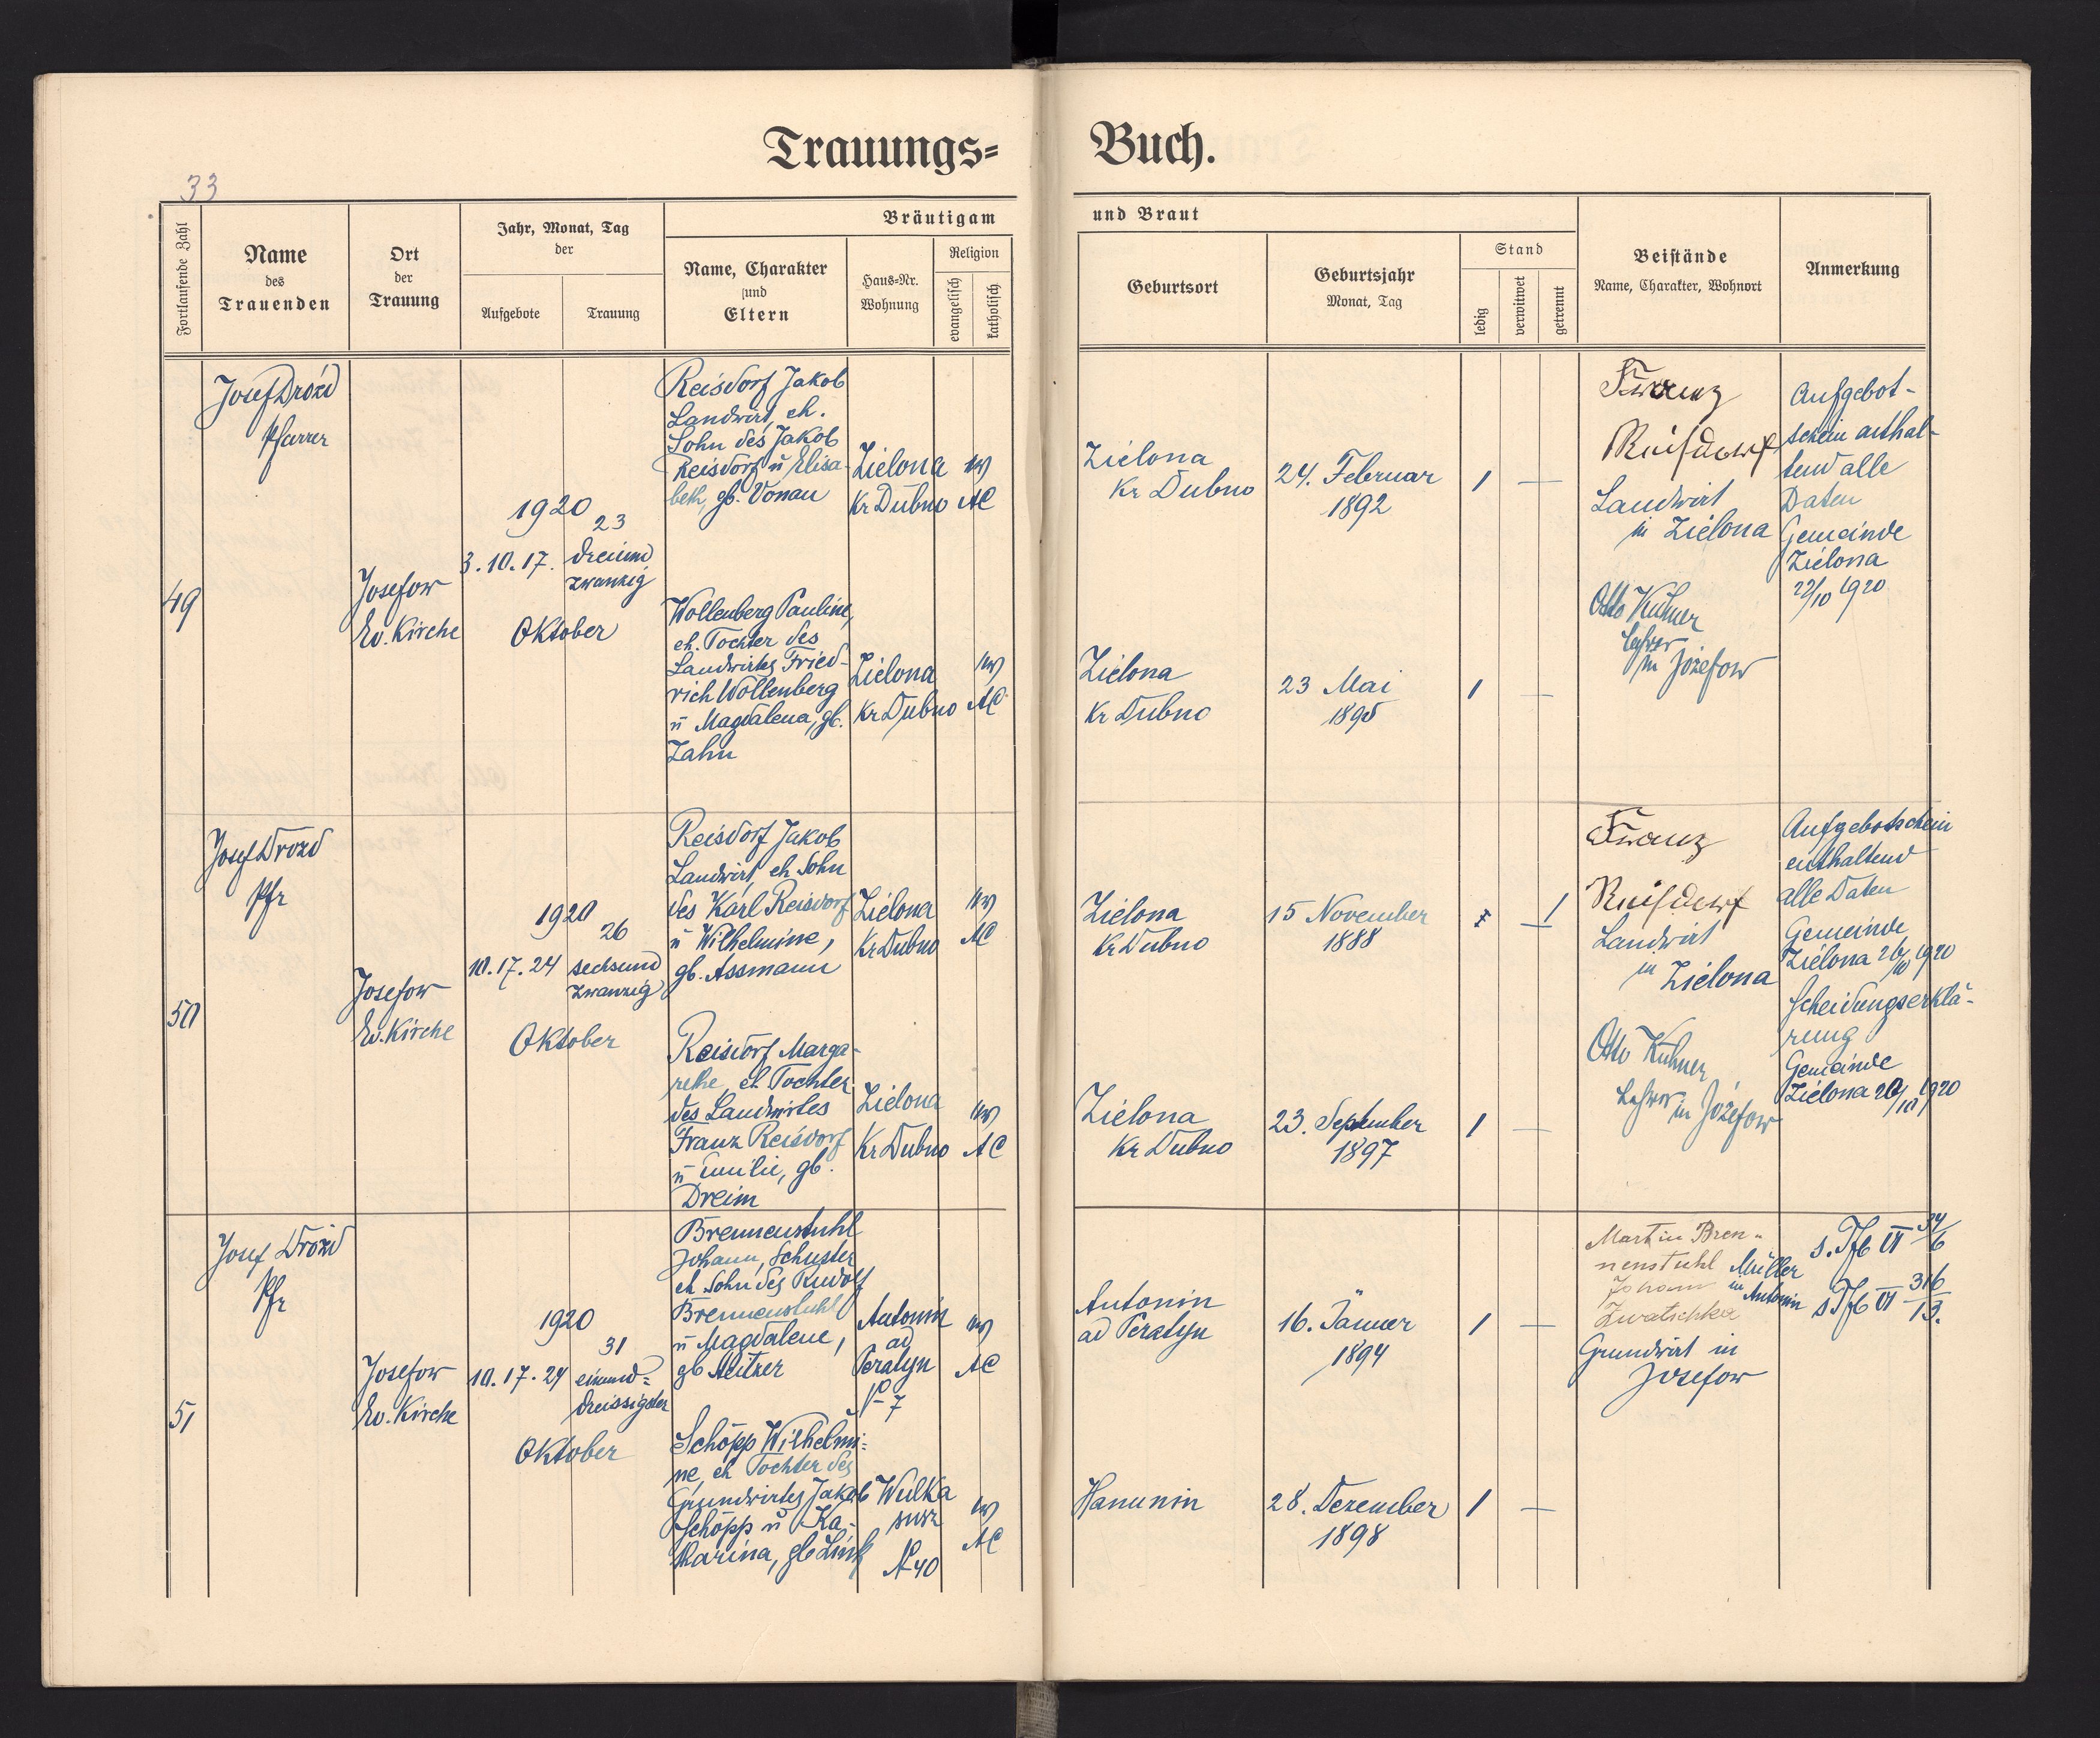 Trauungs= Buch.
33
Fortlaufende Zahl
Name
des
Trauenden
Ort
der
Trauung
Jahr, Monat, Tag
der
Aufgebote
Trauung
Bräutigam
und Braut
Name, Charakter
und
Eltern
Haus=Nr.
Wohnung
Religion
evangelisch
katholisch
Geburtsort
Geburtsjahr
Monat, Tag
Stand
ledig
verwitwet
getrennt
Beistände
Name, Charakter, Wohnort
Anmerkung
49
Josef Drózd
Pfarrer
Josefow
Ev. Kirche
1920
3. 10. 17.
23
dreiund
zwanzig
Oktober
Reisdorf Jakob
Landwirt, eh.
Sohn des Jakob
Reisdorf u Elisa-
beth, gb. Vonau
Zielona
Kr Dubno
AC
Zielona
Kr Dubno
24. Februar
1892
1 —
Wollenberg Pauline,
eh. Tochter des
Landwirtes Fried-
rich Wollenberg
u Magdalena, gb.
Zahn
Zielona
Kr Dubno
AC
Zielona
Kr Dubno
23 Mai
1895
1 —
Franz
Reisdorf
Landwirt
in Zielona
Otto Kühner
Lehrer
in Józefow
Aufgebot-
schein enthal-
tend alle
Daten
Gemeinde
Zielona
22/10 1920
50
Josef Drozd
Pfr
Josefow
Ev. Kirche
1920
10. 17. 24
26
sechsund
zwanzig
Oktober
Reisdorf Jakob
Landwirt, eh Sohn
des Karl Reisdorf
u Wilhelmine,
gb. Assmann
Zielona
Kr Dubno
AC
Zielona
Kr Dubno
15 November
1888
— 1
Reisdorf Marga-
rethe, eh. Tochter
des Landwirtes
Franz Reisdorf
u Emilie, gb.
Dreim
Zielona
Kr Dubno
AC
Zielona
Kr Dubno
23. September
1897
1 —
Franz
Reisdorf
Landwirt
in Zielona
Otto Kühner
Lehrer in Józefow
Aufgebotschein
enthaltend
alle Daten
Gemeinde
Zielona 26/10 1920
Scheidungserklä-
rung
Gemeinde
Zielona 20/10 1920
51
Josef Drózd
Pfr
Josefow
Ev. Kirche
1920
10. 17. 24
31
einund=
dreissigster
Oktober
Brennenstuhl
Johann, Schuster
eh. Sohn des Rudolf
Brennenstuhl
u Magdalene,
gb
Antonin
ad
Peratyn
№ 7
AC
Antonin
ad Peratyn
16. Jänner
1894
1 —
Schöpp Wilhelmi=
ne, eh Tochter des
Grundwirtes Jakob
Schöpp u Ka-
tharina, gb Link
Wulka
susz
№ 40
AC
Hanunin
28. Dezember
1898
1 —
Martin Bren-
nenstuhl Müller
in Antonin
Johann
Zwatschka
Grundwirt in
Josefow
s. Tfb VI 34/6
s Tfb VI 316/13.